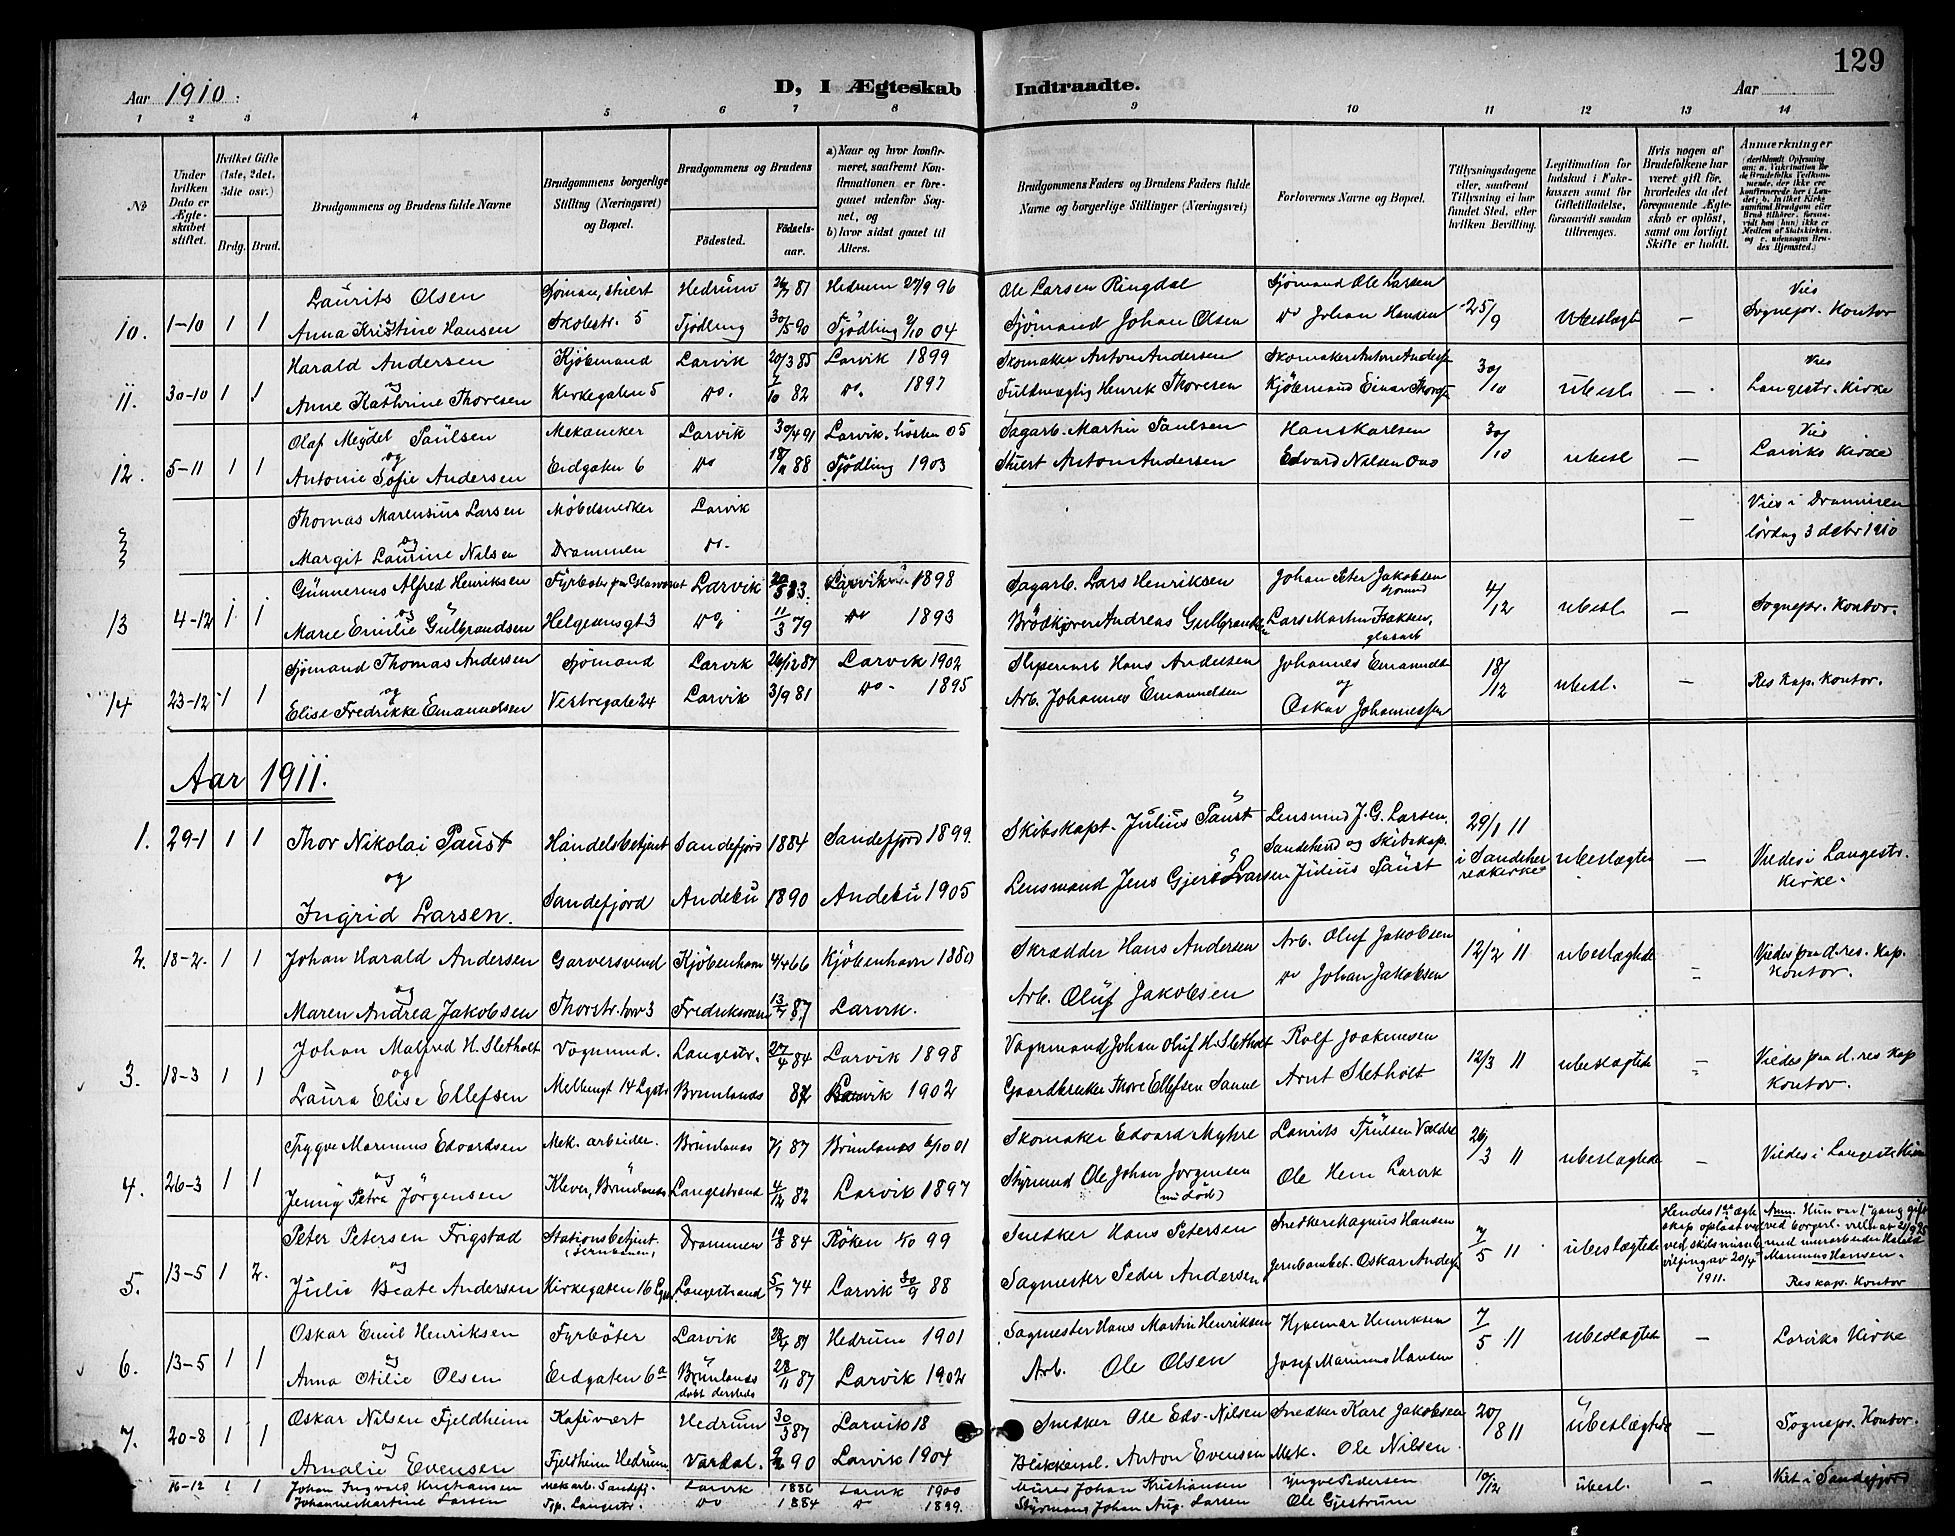 129
Aar 1910.
D, I Ægteskab Indtraadte.
Aar
1 2 3 4 5 6 7 8 9 10 11 12 13 14
№
Under hvilken Dato er Ægteskabet stiftet.
Hvilket Gifte (1ste, 2det, 3dte osv.)
Brdg. Brud.
Brudgommens og Brudens fulde Navne
Brudgommens borgerlige Stilling (Næringsvei) og Bopæl.
Brudgommens og Brudens
Fødested. Fødselsaar.
a) Naar og hvor konfirmeret, saafremt Konfirmationen er foregaaet udenfor Sognet, og
b) hvor sidst gaaet til Alters.
Brudgommens Faders og Brudens Faders fulde Navne og borgerlige Stillinger (Næringsvei)
Forlovernes Navne og Bopæl.
Tillysningsdagene eller, saafremt Tillysning ei har fundet Sted, efter hvilken Bevilling.
Legitimation for Indskud i Enkekassen samt for Giftetilladelse, forsaavidt saadan tiltrænges.
Hvis nogen af Brudefolkene har været gift før, hvorledes da det foregaaende Ægteskab er opløst, samt om lovligt Skifte er holdt.
Anmerkninger
Laurits Olsen Sjømand, stuert Hedrum 87 Hedrum 27/9 96 Ole Larsen Ringdal Sjømand Ole Larsen Vies
10. 1-10 1 1 Anna Kristine Hansen Skolestr. 5 Tjødling 30/5 90 Tjødling 2/10 04 Sjømand Johan Olsen do Johan Hansen 25/9 Ubeslægt — Sognepr. Kontor
Harald Andersen Kjøbmand Larvik 20/3 85 Larvik 1899 Skomaker Anton Andersen Skomaker Anton Anders Vies
11. 30-10 1 1 og Anne Kathrine Thoresen Kirkegaten 5 do. 7/10 82 do. 1897 Fuldmægtig Henrik Thoresen Kjøbmand Einar Thores 30/10 ubesl — Langestr. Kirke
Olaf Meydel Paulsen Mekaniker Larvik 30/4 91 Larvik, høsten 05 Sagarb. Martin Paulsen Hans Karlsen Vies
12. 5-11 1 1 og Antonie Sofie Andersen Eidgaten 6 do 18/11 88 Tjødling 1903 Stuert Anton Andersen Edvard Nilsen 30/10 ubesl — Larviks Kirke
Thomas Marensius Larsen Møbelsnedker Larvik — Vies i Drammen
og Margit Laurine Nilsen Drammen do. lørdag 3 debr 1910
Gunnerius Alfred Henriksen Fyrbøter paa Glasværket Larvik 83. Larvik 1898 Sagarb. Lars Henriksen Johan Peter Jakobsen
13 4-12 1 1 og Marie Emilie Gulbrandsen Helgeansgt 3 do 11/3 79 do 1893 Brødkjører Andreas Gulbrandsen Lars Martin Isaksen, glasarb 4/12 ubesl — Sognepr. Kontor.
Sjømand Thomas Andersen Sjømand Larvik 26/12 87 Larvik 1902 Sliperiarb Hans Andersen Johannes Emanuelsen
14 23-12 1 1 og Elise Fredrikke Emanuelsen Vestregate 24 Larvik 3/9 81 do. 1895 Arb. Johannes Emanuelsen og Oskar Johannessen 18/12 ubesl. — Res Kap. Kontor.
Aar 1911.
1. 29-1 1 1 Thor Nikolai Paust Handelsbetjent Sandefjord 1884 Sandefjord 1899. Skibskapt. Julius Paust Lensmand J. G. Larsen, Sandeherred og Skibskap. Julius Paust 29/1 11 i Sandeherredkirke ubeslægtede — Viedes i Langestr. Kirke.
og Ingrid Larsen. Sandefjord Andebu 1890 Andebu 1905 Lensmand Jens Gjerb Larsen
2. 18-2. 1 1 Johan Harald Andersen Garversvend Kjøbenhavn 4/4 66 Kjøbenhavn 1880 Skrædder Hans Andersen Arb. Oluf Jakobsen 12/2 11 ubeslægtede — Viedes paa d. res. Kap. Kontor.
og Maren Andrea Jakobsen Thorstr. torv 3 Fredriksværn 87 Larvik. Arb. Oluf Jakobsen do Johan Jakobsen
Johan Malfred H. Sletholt Vognmand. Langestr. 27/4 84 Larvik 1898 Vognmand Johan Oluf H. Sletholt Rolf Joakimsen
3. 18-3 1 1 og Laura Elise Ellefsen Mellemgt 14 Lgstr Brunlanes 82 Larvik 1902 Gaardbruker Thore Ellefsen Arnt Sletholt 12/3 11 ubeslægtede — Viedes paa d. res Kap Kontor.
Trygve Marinius Edvardsen Mek. arbeider. Brunlanes 7/1 87 Brunlanes 6/10 01 Skomaker Edvard Myhre Laurits Trulsen
4. 26-3 1 1 og Jenny Petra Jørgensen Klever, Brunlanes Langestrand 4/12 82 Larvik 1897 Styrmand Ole Johan Jørgensen Ole Hem Larvik 26/3 11 ubeslægtede — Viedes i Langestr. Kirke
Peter Petersen Frigstad Stationsbetjent (Jernbanen) Drammen 84 Røken 99 Snedker Hans Petersen Snedker Magnus Hansen Hendes 1ste ægteskap opløst ved ved skilsmissebevilling av 20/4 1911. Anm. Hun var 1ste gang gift ved borgerl. vielse av 21/9 95 med murarbeider Harald Marinius Hansen.
5. 13-5 1 2. og Julie Beate Andersen Kirkegaten 16 Lgstr. Langestrand 74 Larvik 30/9 88 Sagmester Peder Andersen Jernbanebet. Oskar Anders 7/5 11 ubeslægtede Res kap. Kontor
Oskar Emil Henriksen Fyrbøter Larvik 81 Hedrum 1901 Sagmester Hans Martin Henriksen Hjalmar Henriksen
6. 13-5 1 1 og Anna Otilie Olsen Eidgaten 6a Brunlanes døbt dersteds 23/11 87 Larvik 1902 Arb. Ole Olsen Josef Marinius Hansen 7/5 11 ubeslægtede — Larviks Kirke
Oskar Nilsen Fjeldheim Kafévært Hedrum 30/3 87 Larvik 18 Snedker Ole Edv. Nilsen Snedker Karl Jakobsen
7. 20-8 1 1 og Amalie Evensen Fjeldheim Hedrum. Vardal. 90 Larvik 1904 Blikkensl. Anton Evensen Mek. Ole Nilsen. 20/8 11 ubeslægtede — Sognepr. Kontor.
16-12 1 1 Johan Ingvald Kristiansen Mek arb. Sandefj. Larvik 1886 Larvik 1900 Murer Johan Kristiansen Yngve Pedersen 10/12 ubesl. — Viet i Sandefjord
Johanne Martine Larsen Langestr. do 1884 do 1899. Styrmand Johan Aug. Larsen Ole Gjestrum